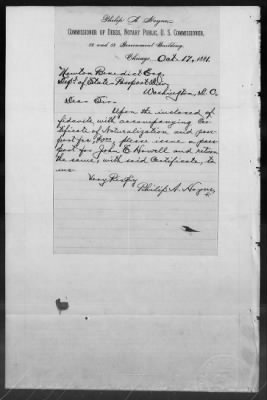 Philip A. Hoyne,
COMMISSIONER OF DEEDS, NOTARY PUBLIC, U. S. COMMISSIONER,
Building,
Chicago, Oct. 17, 1881.
Newton Benedict Esq,
Dept of State - Passport Div
Washington, D. C.
Dear Sir -
Upon the inclosed af-
fidavits, with accompanying Cer-
tificate of Naturalization and pass-
port fee, please issue a pass-
port for John E Howell and return
the same, with said Certificate, to
me
Very Respfy
Philip A. Hoyne,